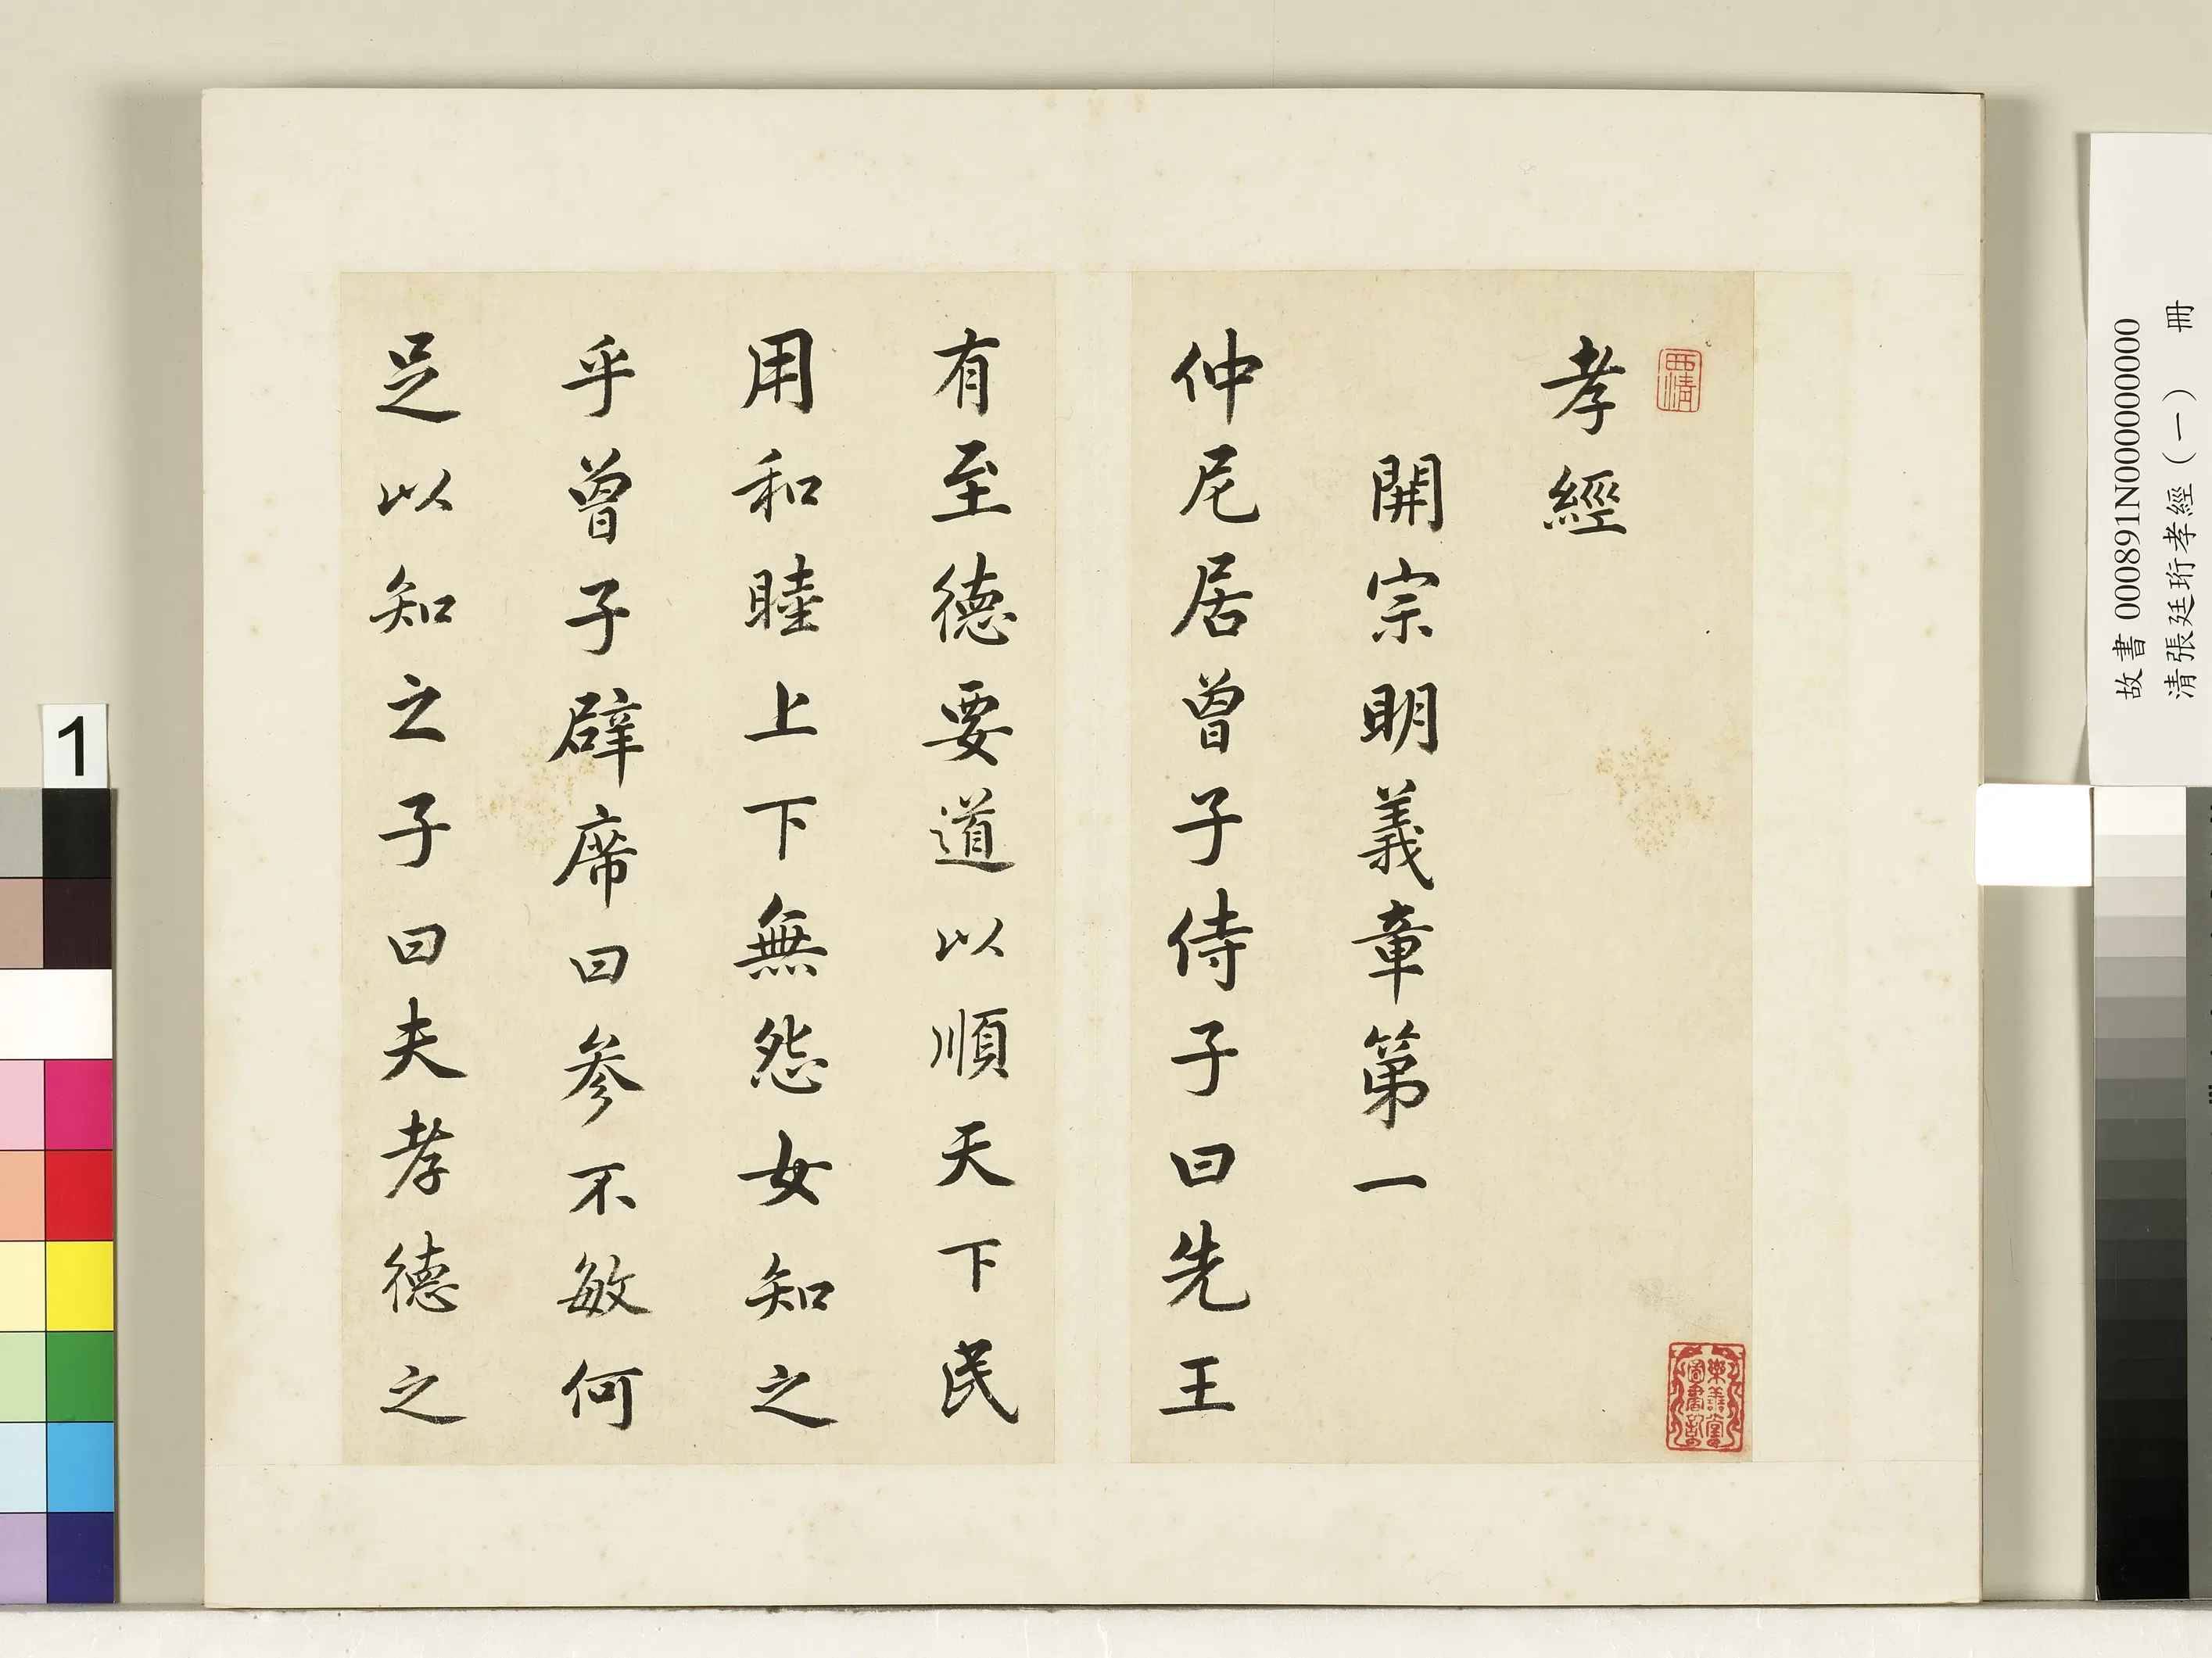 孝經
開宗明義章第一
仲尼居曾子侍子曰先王
有至德要道以順天下民
用和睦上下無怨女知之
乎曾子辟席曰參不敏何
足以知之子曰夫孝德之
西清
樂善堂圖書記
故書 000891N000000000
清張廷珩孝經（一） 冊
1